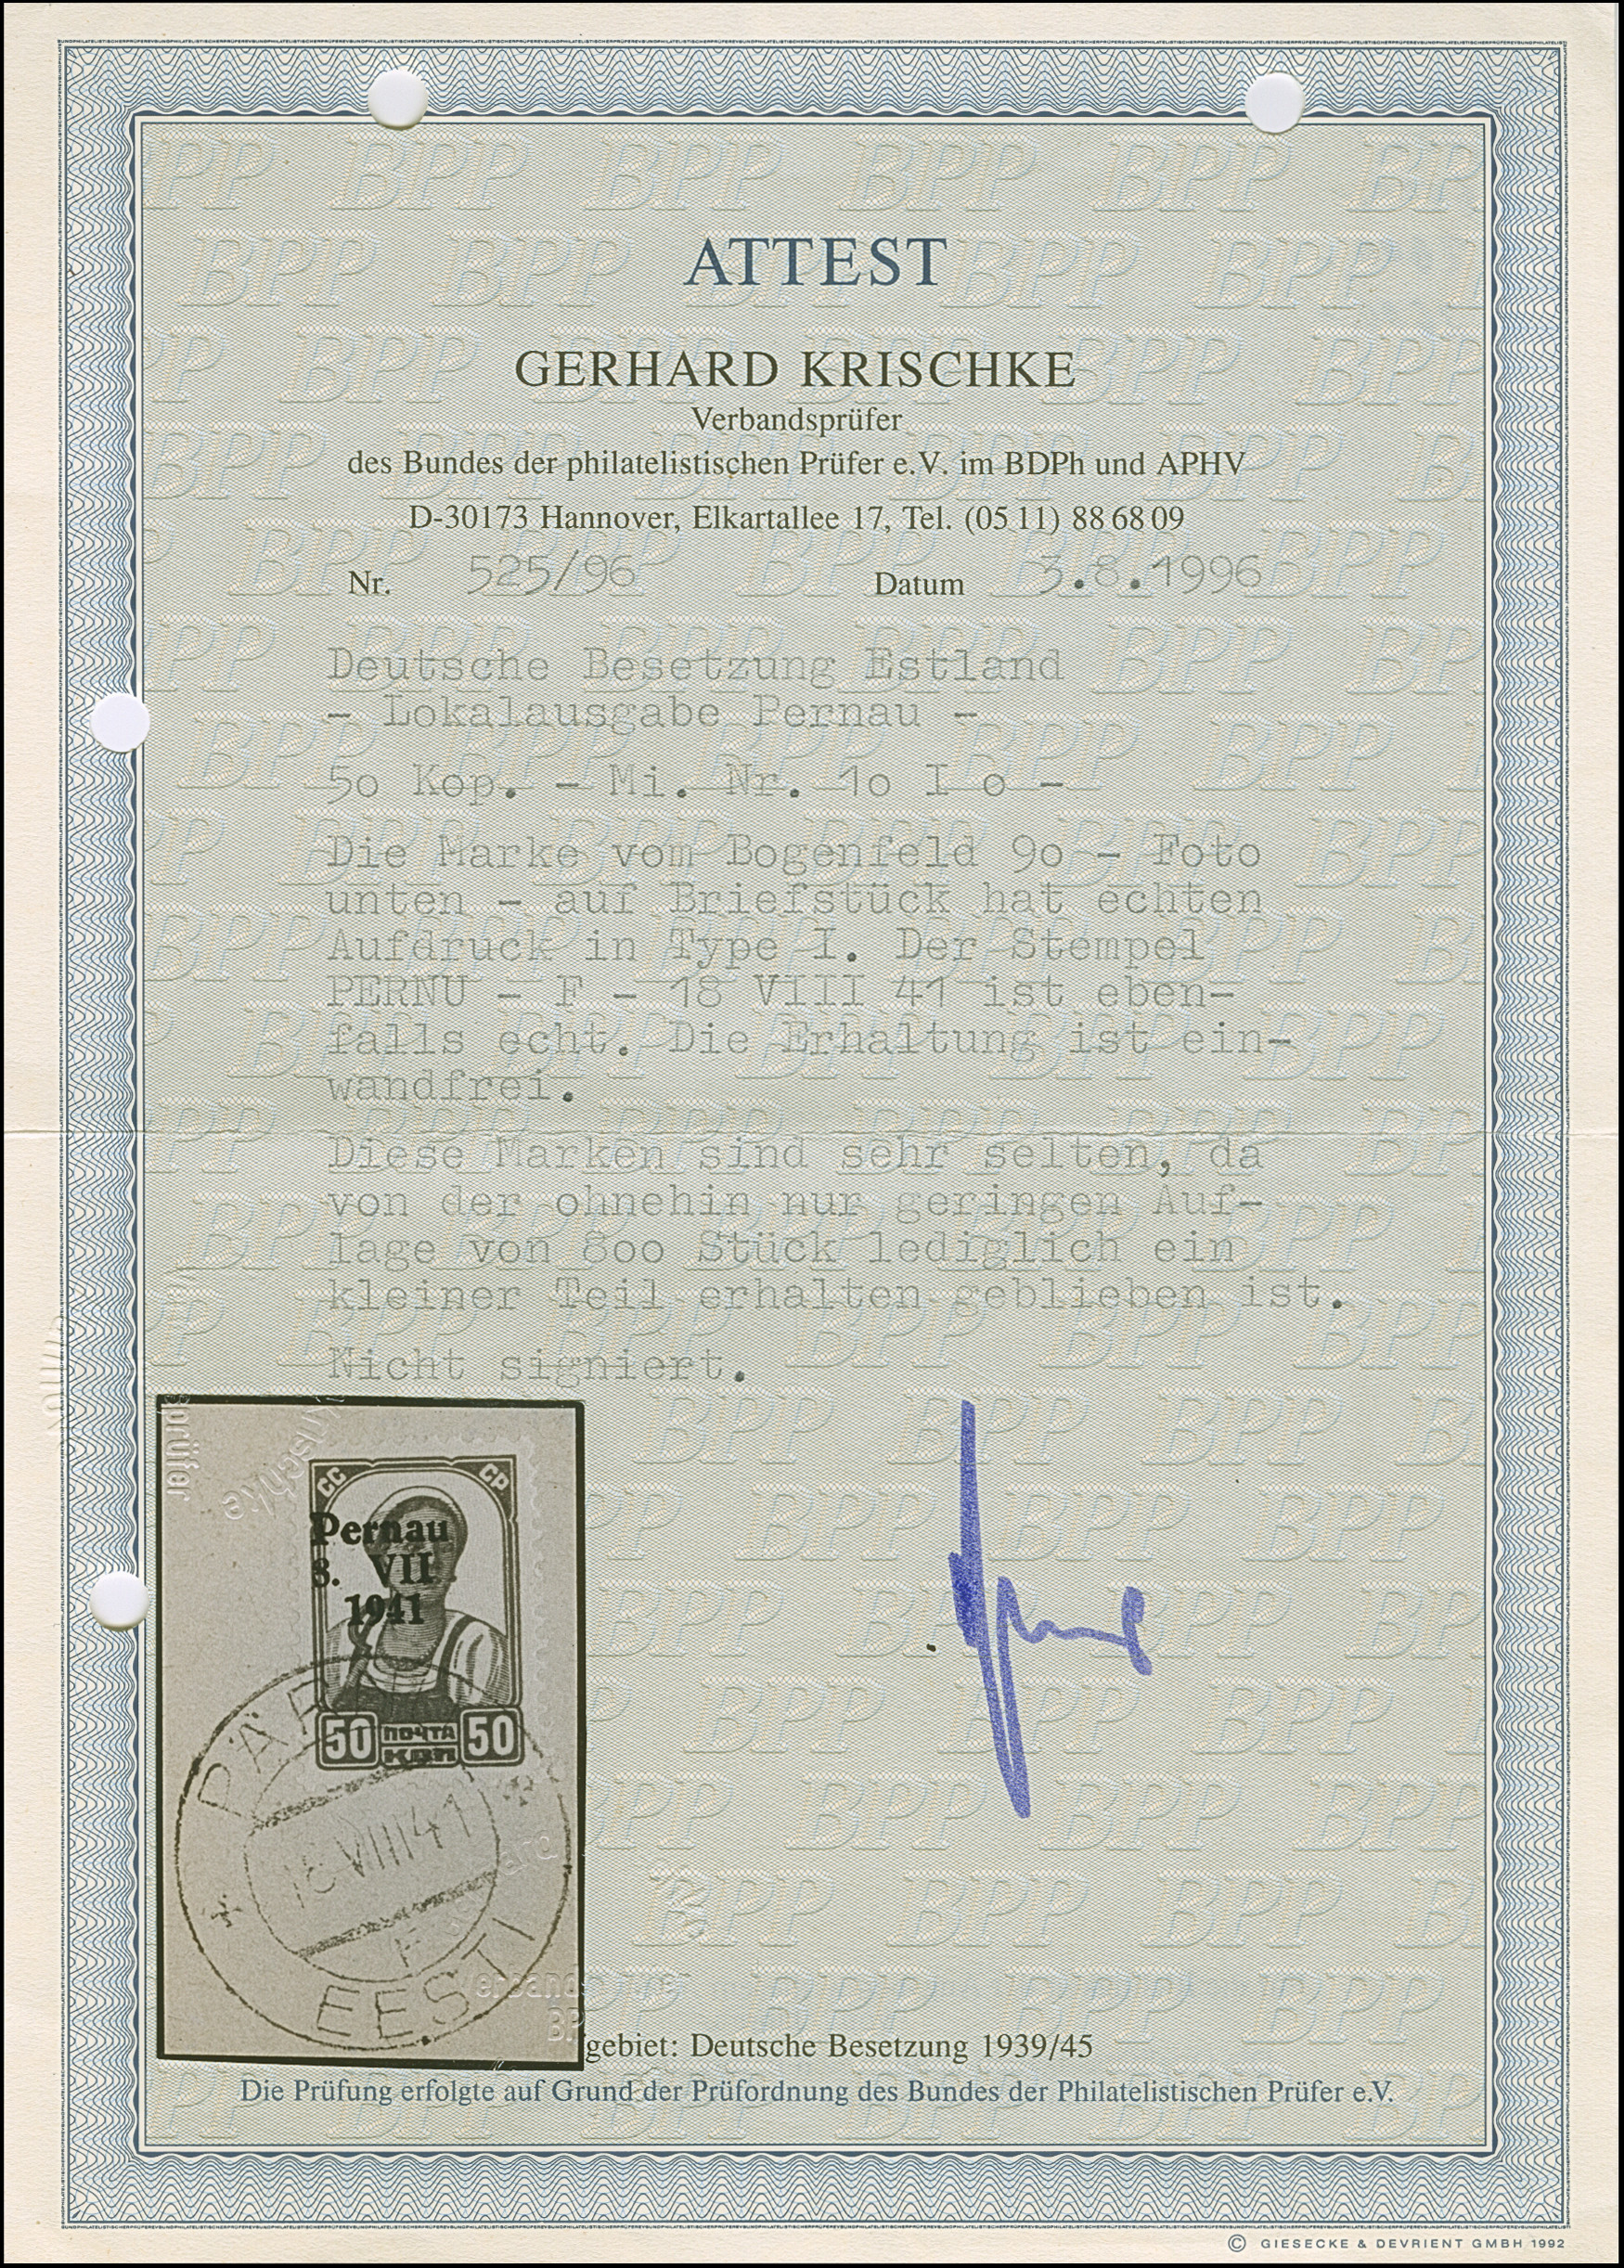 ATTEST
GERHARD KRISCHKE
Verbandsprüfer
des Bundes der philatelistischen Prüfer e.V. im BDPh und APHV
D-30173 Hannover, Elkartallee 17, Tel. (05 11) 88 68 09
Nr. 525/96 Datum 3.8.1996
Deutsche Besetzung Estland
- Lokalausgabe Pernau -
5o Kop. - Mi. Nr. 1o I o -
Die Marke vom Bogenfeld 9o - Foto
unten - auf Briefstück hat echten
Aufdruck in Type I. Der Stempel
PERNU - F - 18 VIII 41 ist eben-
falls echt. Die Erhaltung ist ein-
wandfrei.
Diese Marken sind sehr selten, da
von der ohnehin nur geringen Auf-
lage von 8oo Stück lediglich ein
kleiner Teil erhalten geblieben ist.
Nicht signiert.
prüfer
CC CP
Pernau
8. VII.
1941
50 ПОЧТА 50
КОП
18 VIII 41
F
EESTI
gebiet: Deutsche Besetzung 1939/45
Die Prüfung erfolgte auf Grund der Prüfordnung des Bundes der Philatelistischen Prüfer e.V.
© GIESECKE & DEVRIENT GMBH 1992